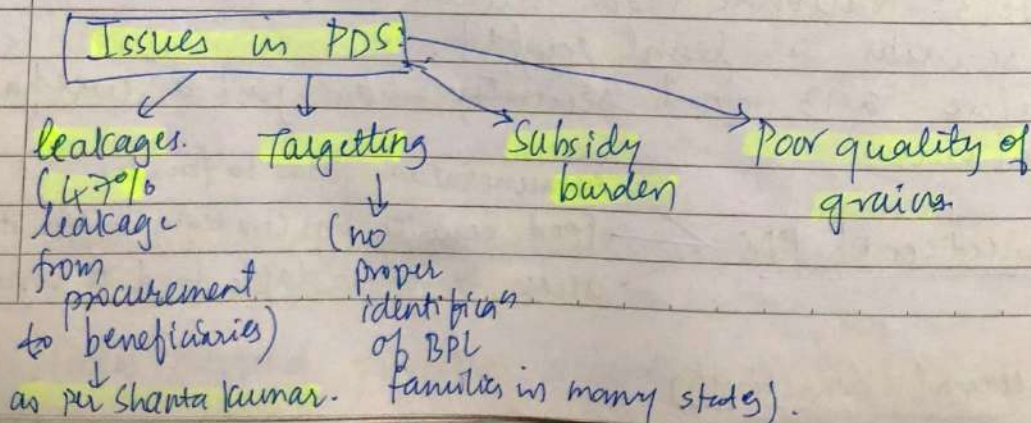 Issues in PDS:
leakages.
(47%
leakage
from
procurement
to beneficiaries)
as per Shanta kumar.
Targetting
(no
proper
identificaⁿ
of BPL
families in many states).
Subsidy
burden
Poor quality of
grains.